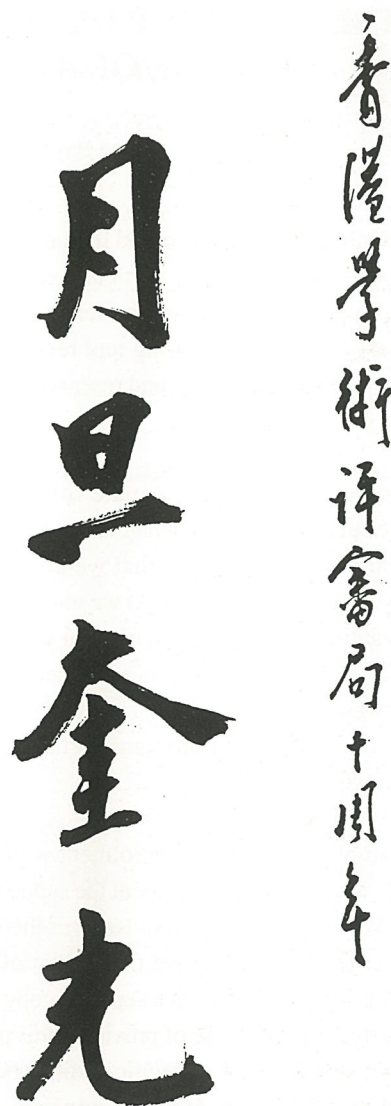 香港學術評審局十周年
月旦奎光